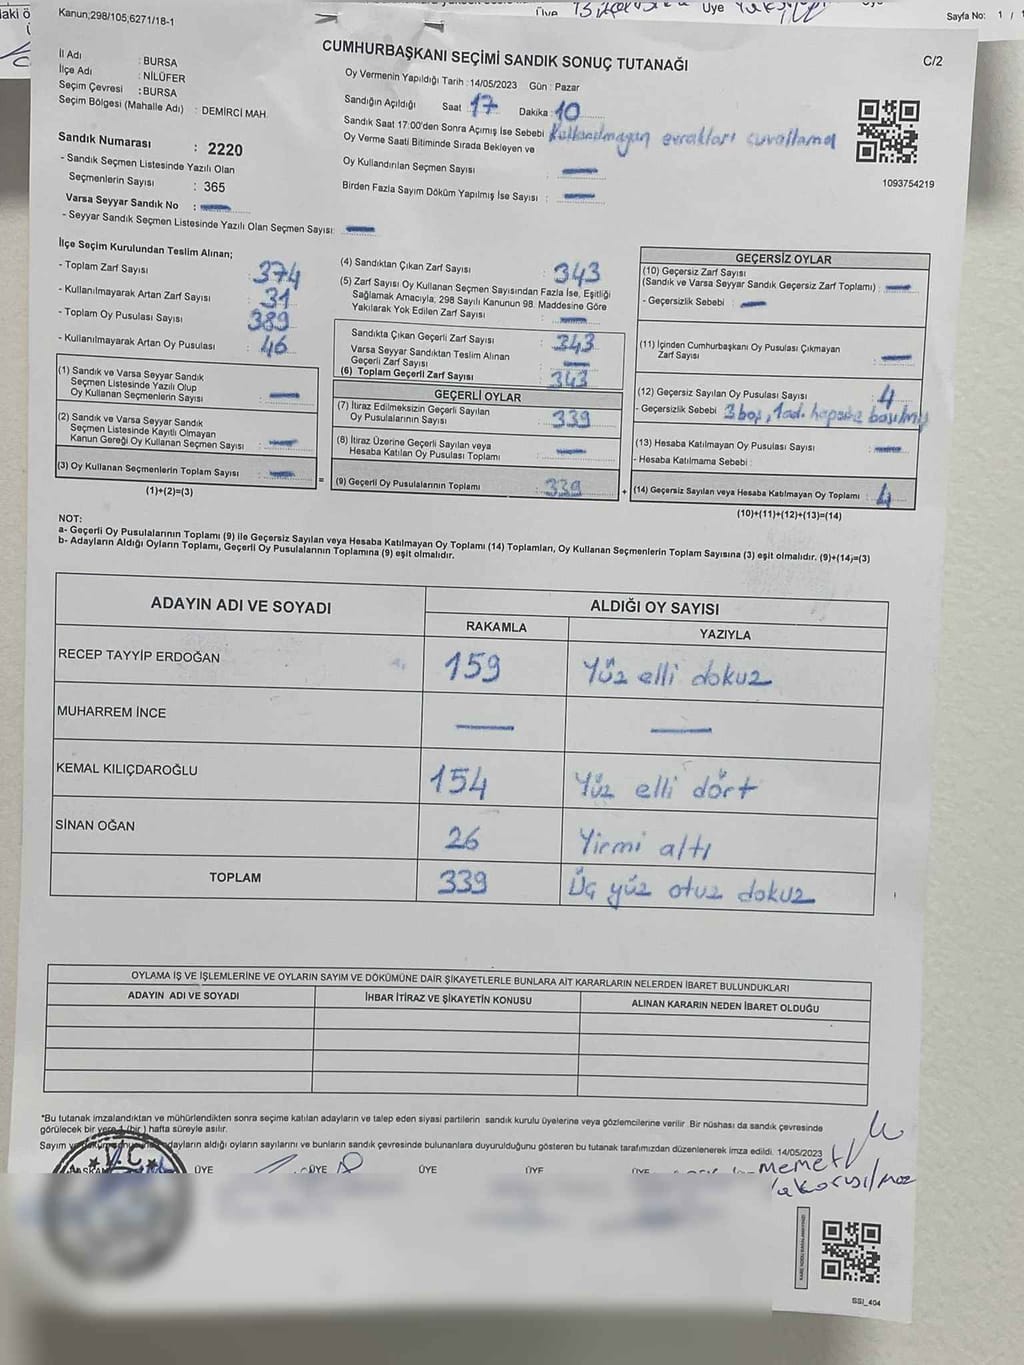 Kanun;298/105,6271/18-1
Üye
Üye
Sayfa No: 1 /
CUMHURBAŞKANI SEÇİMİ SANDIK SONUÇ TUTANAĞI
C/2
İl Adı : BURSA
İlçe Adı : NİLÜFER
Seçim Çevresi : BURSA
Seçim Bölgesi (Mahalle Adı) : DEMİRCİ MAH.
Sandık Numarası : 2220
- Sandık Seçmen Listesinde Yazılı Olan
Seçmenlerin Sayısı : 365
Varsa Seyyar Sandık No : —
- Seyyar Sandık Seçmen Listesinde Yazılı Olan Seçmen Sayısı: —
Oy Vermenin Yapıldığı Tarih : 14/05/2023 Gün : Pazar
Sandığın Açıldığı Saat 17 Dakika : 10
Sandık Saat 17:00'den Sonra Açımış İse Sebebi Kullanılmayan evrakları çuvallama
Oy Verme Saati Bitiminde Sırada Bekleyen ve
Oy Kullandırılan Seçmen Sayısı : —
Birden Fazla Sayım Döküm Yapılmış İse Sayısı : —
1093754219
İlçe Seçim Kurulundan Teslim Alınan;
- Toplam Zarf Sayısı : 374
- Kullanılmayarak Artan Zarf Sayısı : 31
- Toplam Oy Pusulası Sayısı : 389
- Kullanılmayarak Artan Oy Pusulası : 46
(1) Sandık ve Varsa Seyyar Sandık
Seçmen Listesinde Yazılı Olup
Oy Kullanan Seçmenlerin Sayısı : —
(2) Sandık ve Varsa Seyyar Sandık
Seçmen Listesinde Kayıtlı Olmayan
Kanun Gereği Oy Kullanan Seçmen Sayısı : —
(3) Oy Kullanan Seçmenlerin Toplam Sayısı : —
(1)+(2)=(3)
(4) Sandıktan Çıkan Zarf Sayısı : 343
(5) Zarf Sayısı Oy Kullanan Seçmen Sayısından Fazla İse, Eşitliği
Sağlamak Amacıyla, 298 Sayılı Kanunun 98. Maddesine Göre
Yakılarak Yok Edilen Zarf Sayısı : —
Sandıkta Çıkan Geçerli Zarf Sayısı : 343
Varsa Seyyar Sandıktan Teslim Alınan
Geçerli Zarf Sayısı : —
(6) Toplam Geçerli Zarf Sayısı : 343
GEÇERLİ OYLAR
(7) İtiraz Edilmeksizin Geçerli Sayılan
Oy Pusulalarının Sayısı : 339
(8) İtiraz Üzerine Geçerli Sayılan veya
Hesaba Katılan Oy Pusulası Toplamı : —
= (9) Geçerli Oy Pusulalarının Toplamı : 339
GEÇERSİZ OYLAR
(10) Geçersiz Zarf Sayısı
(Sandık ve Varsa Seyyar Sandık Geçersiz Zarf Toplamı) : —
- Geçersizlik Sebebi : —
(11) İçinden Cumhurbaşkanı Oy Pusulası Çıkmayan
Zarf Sayısı : —
(12) Geçersiz Sayılan Oy Pusulası Sayısı : 4
- Geçersizlik Sebebi 3 boş, 1 ad. hepsine basılmış
(13) Hesaba Katılmayan Oy Pusulası Sayısı : —
- Hesaba Katılmama Sebebi :
+ (14) Geçersiz Sayılan veya Hesaba Katılmayan Oy Toplamı : 4
(10)+(11)+(12)+(13)=(14)
NOT:
a- Geçerli Oy Pusulalarının Toplamı (9) ile Geçersiz Sayılan veya Hesaba Katılmayan Oy Toplamı (14) Toplamları, Oy Kullanan Seçmenlerin Toplam Sayısına (3) eşit olmalıdır. (9)+(14)=(3)
b- Adayların Aldığı Oyların Toplamı, Geçerli Oy Pusulalarının Toplamına (9) eşit olmalıdır.
ADAYIN ADI VE SOYADI ALDIĞI OY SAYISI
RAKAMLA YAZIYLA
RECEP TAYYİP ERDOĞAN 159 Yüz elli dokuz
MUHARREM İNCE — —
KEMAL KILIÇDAROĞLU 154 Yüz elli dört
SİNAN OĞAN 26 Yirmi altı
TOPLAM 339 Üç yüz otuz dokuz
OYLAMA İŞ VE İŞLEMLERİNE VE OYLARIN SAYIM VE DÖKÜMÜNE DAİR ŞİKAYETLERLE BUNLARA AİT KARARLARIN NELERDEN İBARET BULUNDUKLARI
ADAYIN ADI VE SOYADI İHBAR İTİRAZ VE ŞİKAYETİN KONUSU ALINAN KARARIN NEDEN İBARET OLDUĞU
*Bu tutanak imzalandıktan ve mühürlendikten sonra seçime katılan adayların ve talep eden siyasi partilerin sandık kurulu üyelerine veya gözlemcilerine verilir. Bir nüshası da sandık çevresinde
görülecek bir yere 1 (bir) hafta süreyle asılır.
Sayım ve adayların aldığı oyların sayılarını ve bunların sandık çevresinde bulunanlara duyurulduğunu gösteren bu tutanak tarafımızdan düzenlenerek imza edildi. 14/05/2023
T.C.
ÜYE ÜYE ÜYE ÜYE ÜYE
Memet
SSI_404